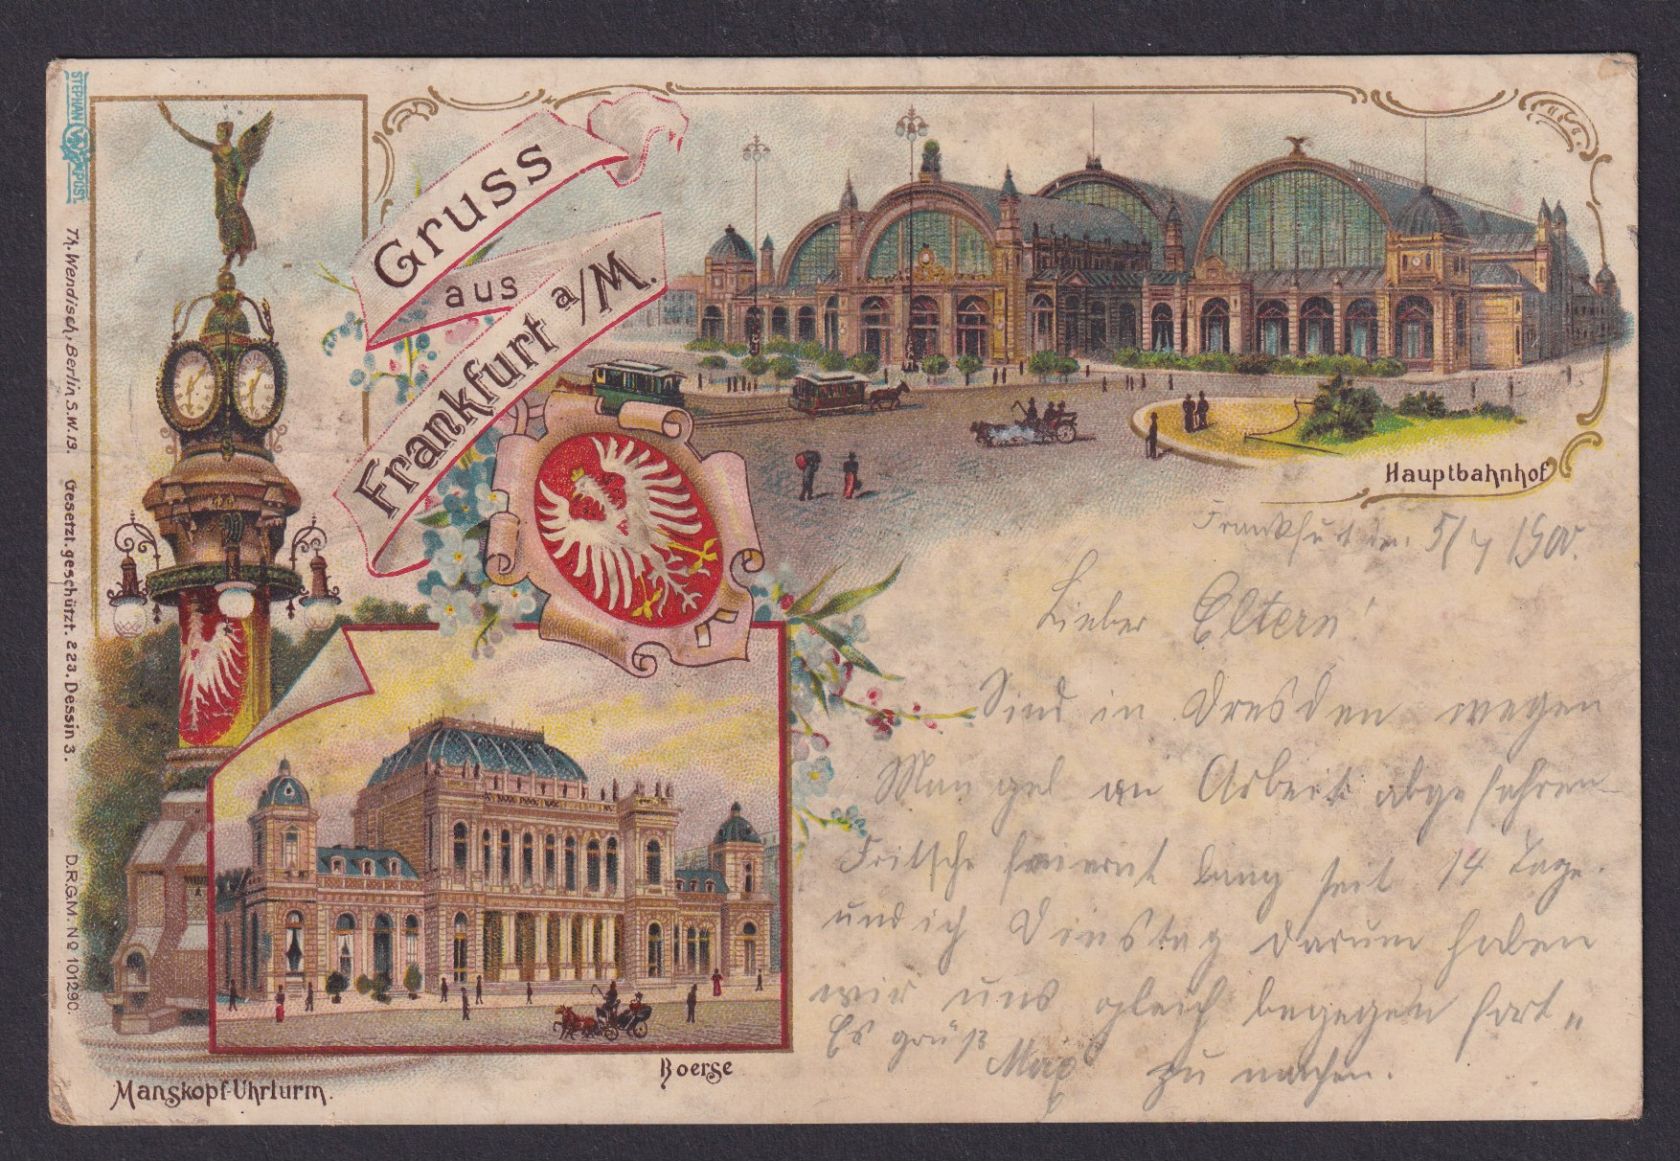 STEPHAN POST
Th. Wendisch, Berlin S.W.13. Gesetzl. geschützt. 223. Dessin 3. D.R.G.M. No 101290.
Gruss
aus
Frankfurt a/M.
Hauptbahnhof
Frankfurt 5/7 1900.
Lieber Eltern!
Sind in Dresden wegen
Mangel an Arbeit abgefahren
Fritsche feiernt lang seit 14 Tage.
und ich Dinstag darum haben
wir uns gleich begegen fort„
Es grüß Max zu machen.
Boerse
Manskopf-Uhrturm.